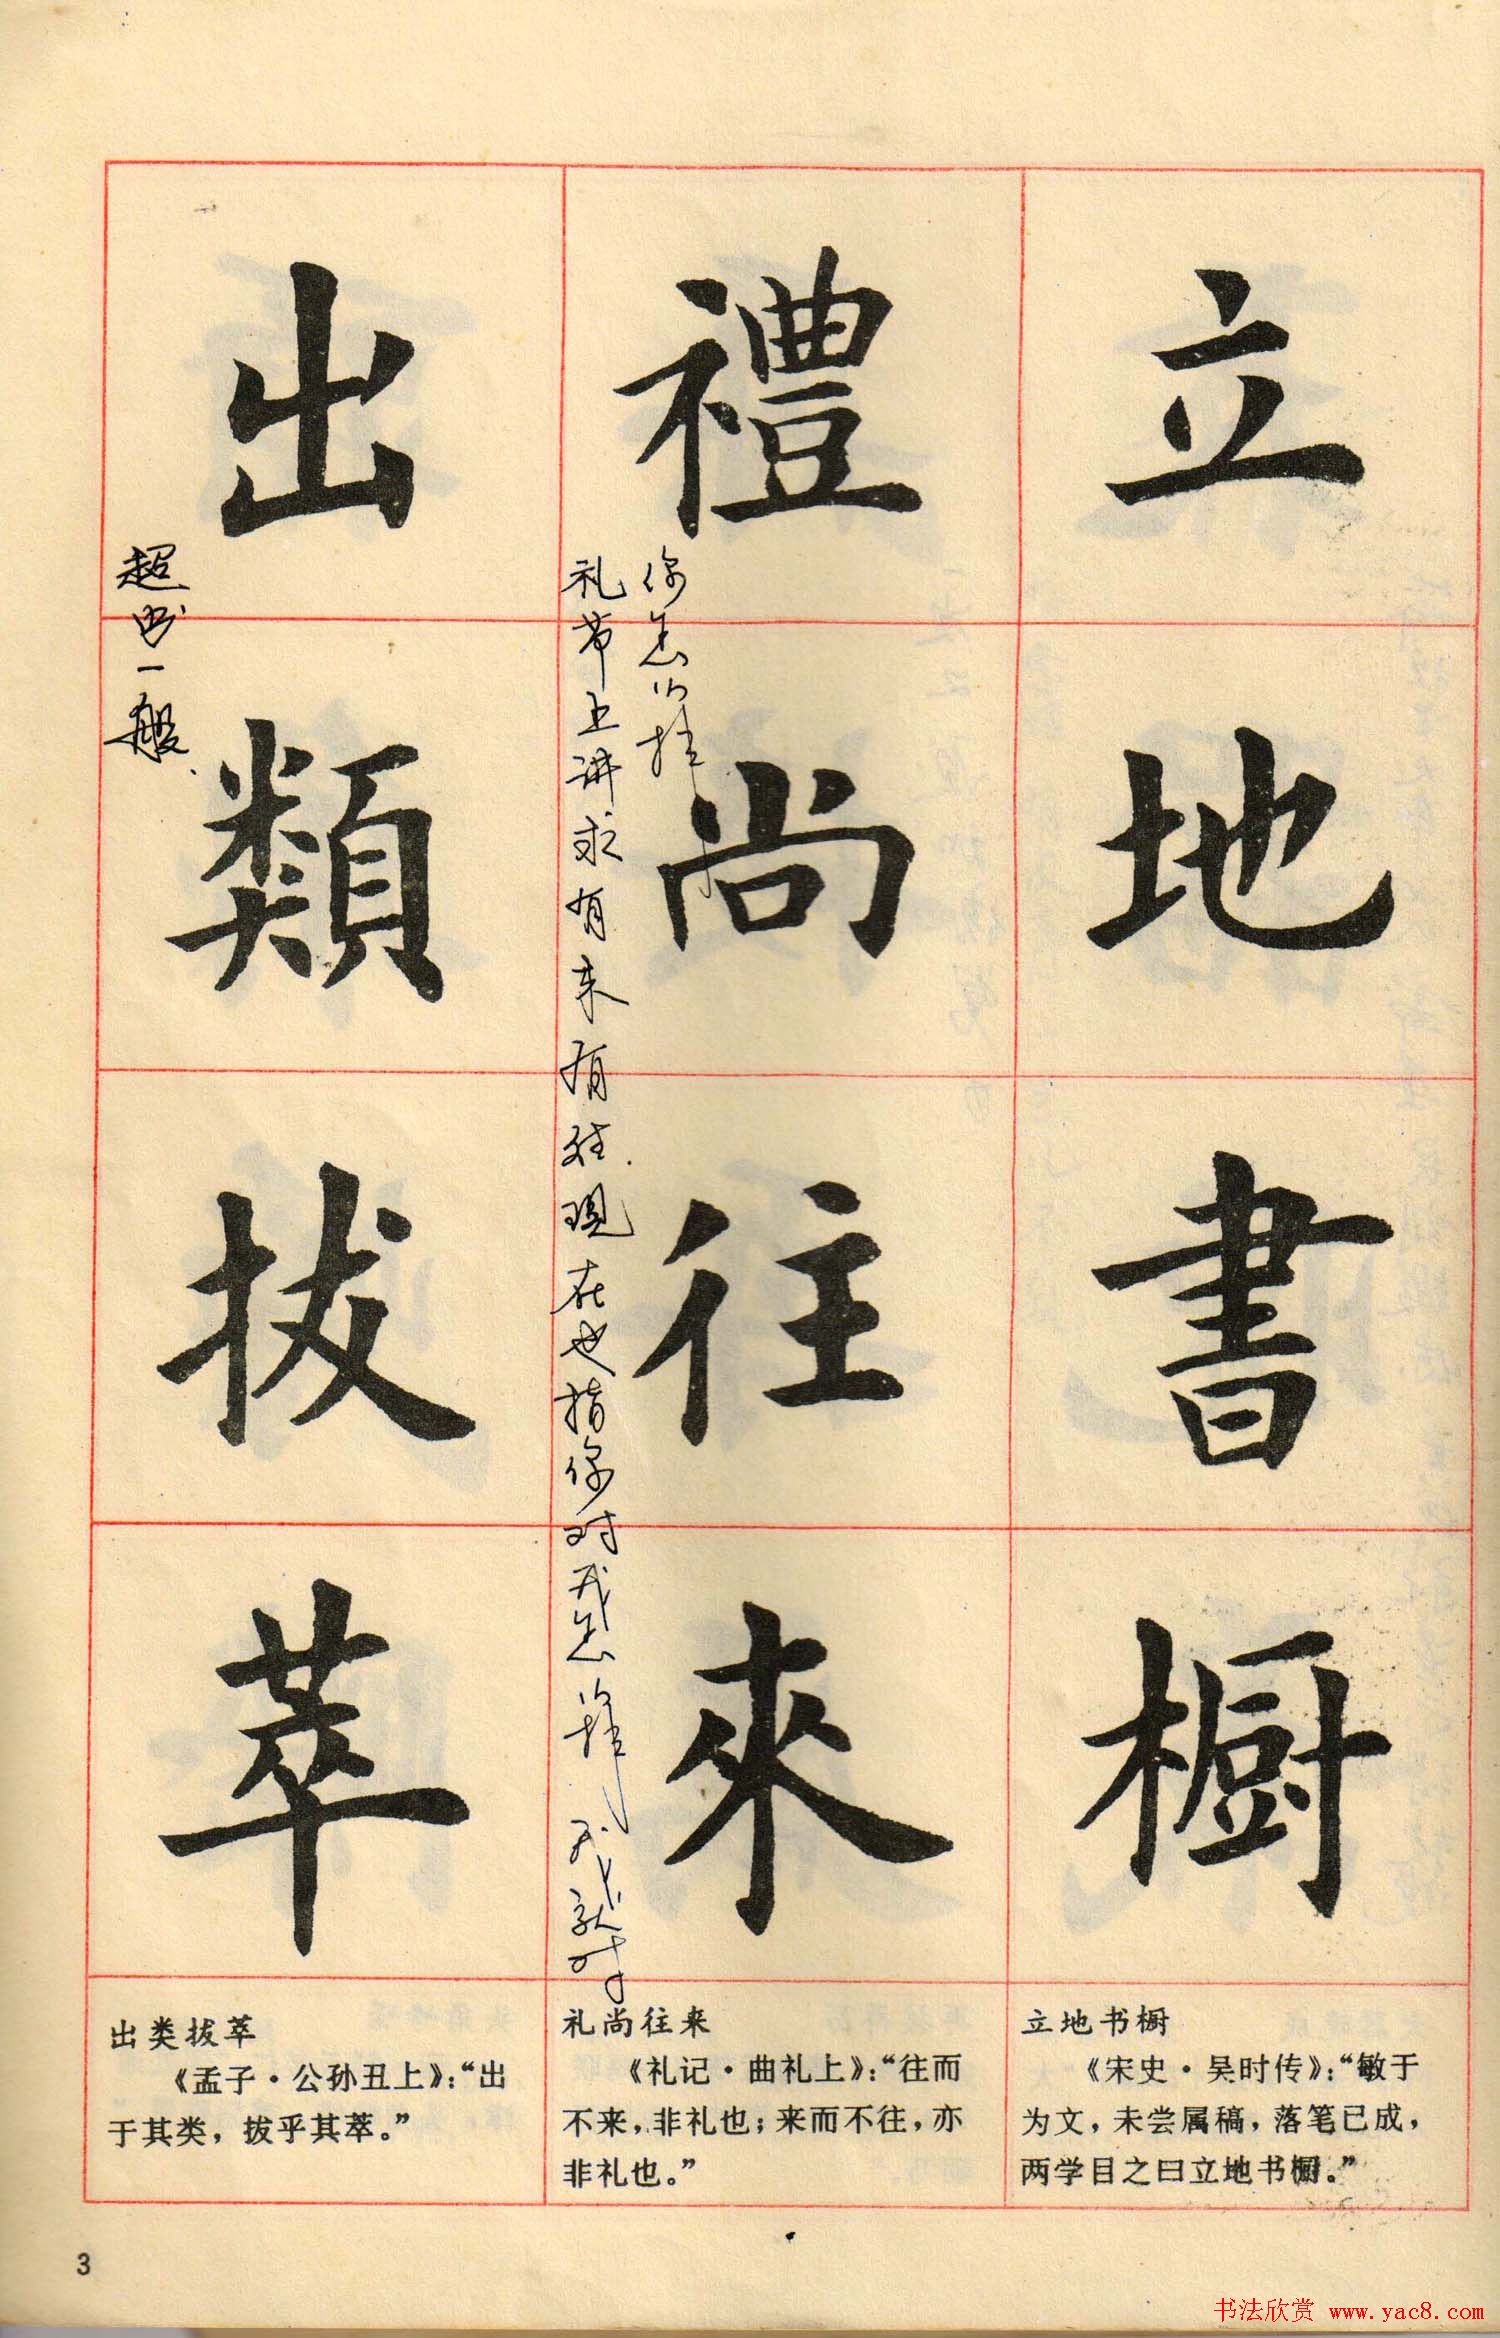 立地書橱
禮尚往來
出類拔萃
礼节上讲求有来有往.现在也指你对我怎样我就对
你怎样
超出一般.
立地书橱
《宋史·吴时传》：“敏于
为文，未尝属稿，落笔已成，
两学目之曰立地书橱。”
礼尚往来
《礼记·曲礼上》：“往而
不来，非礼也；来而不往，亦
非礼也。”
出类拔萃
《孟子·公孙丑上》：“出
于其类，拔乎其萃。”
3
书法欣赏 www.yac8.com